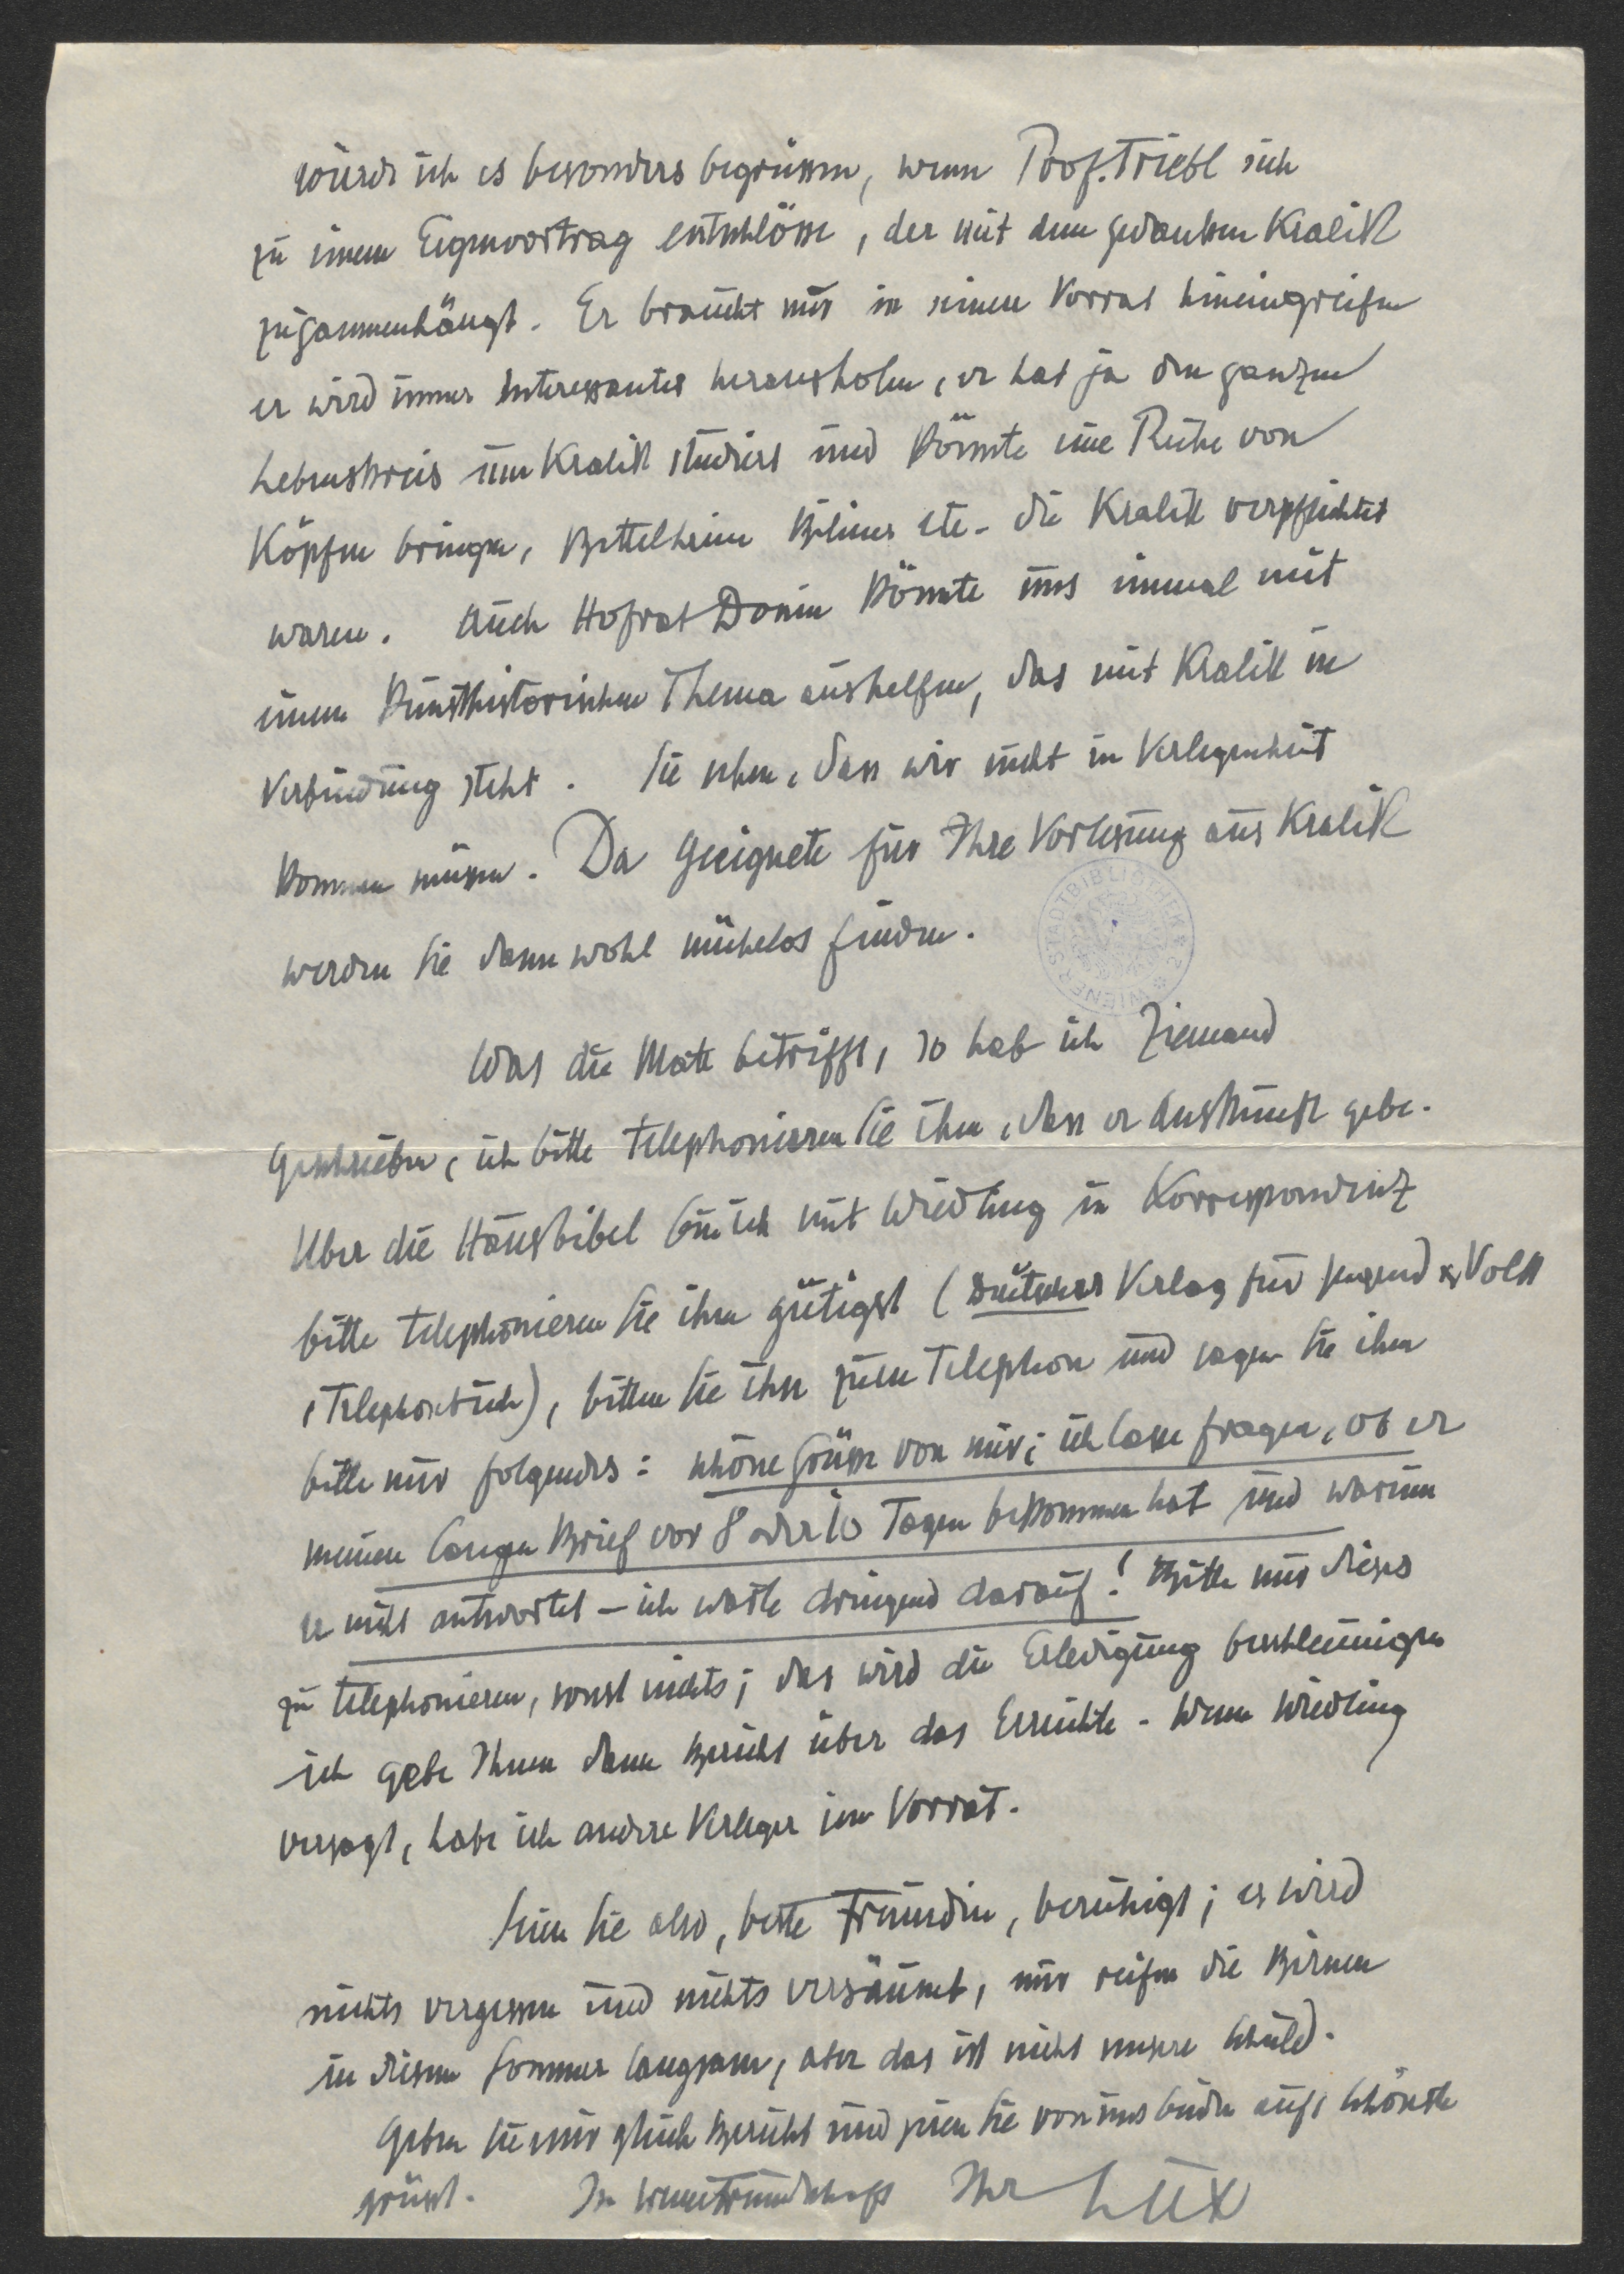 würde ich es besonders begrüssen, wenn Prof. Triebl sich
zu einem Eigenvortrag entschlösse, der mit dem Gedanken Kralik
zusammenhängt. Er braucht nur in seinen Vorrat hineingreifen
er wird immer Interessantes herausholen, er hat ja den ganzen
Lebenskreis um Kralik studiert und könnte eine Reihe von
Köpfen bringen, Bettelheim etc. die Kralik verpflichtet
waren. Auch Hofrat Donin könnte uns einmal mit
einem kunsthistorischen Thema aushelfen, das mit Kralik in
Verbindung steht. Sie sehen, dass wir nicht in Verlegenheit
kommen müssen. Da Geeignete für Ihre Vorlesung aus Kralik
werden Sie dann wohl mühelos finden.
WIENER STADTBIBLIOTHEK
Was die betrifft, so hab ich Ziemand
geschrieben, ich bitte telephonieren Sie ihm, dass er Auskunft gebe.
Über die Hausbibel bin ich mit Wiedling in Korrespondenz
bitte telephonieren Sie ihm gütigst (Deutscher Verlag für Jugend & Volk
, bitten Sie ihn zum Telephon und sagen Sie ihm
bitte nur folgendes: schöne Grüsse von mir; ich lasse fragen, ob er
meinen langen Brief vor 8 oder 10 Tagen bekommen hat und warum
er nicht antwortet – ich warte dringend darauf! Bitte nur dieses
zu telephonieren, sonst nichts; das wird die Erledigung beschleunigen
ich gebe Ihnen dann Bericht über das Erreichte. Wenn Wiedling
versagt, habe ich andere Verleger im Vorrat.
Seien Sie also, beste Freundin, beruhigt; es wird
nichts vergessen und nichts versäumt, nur reifen die Birnen
in diesem Sommer langsam, aber das ist nicht unsere Schuld.
Geben Sie mir gleich Bericht und seien Sie von uns beiden aufs Schönste
grüsst. In Ihr Lux